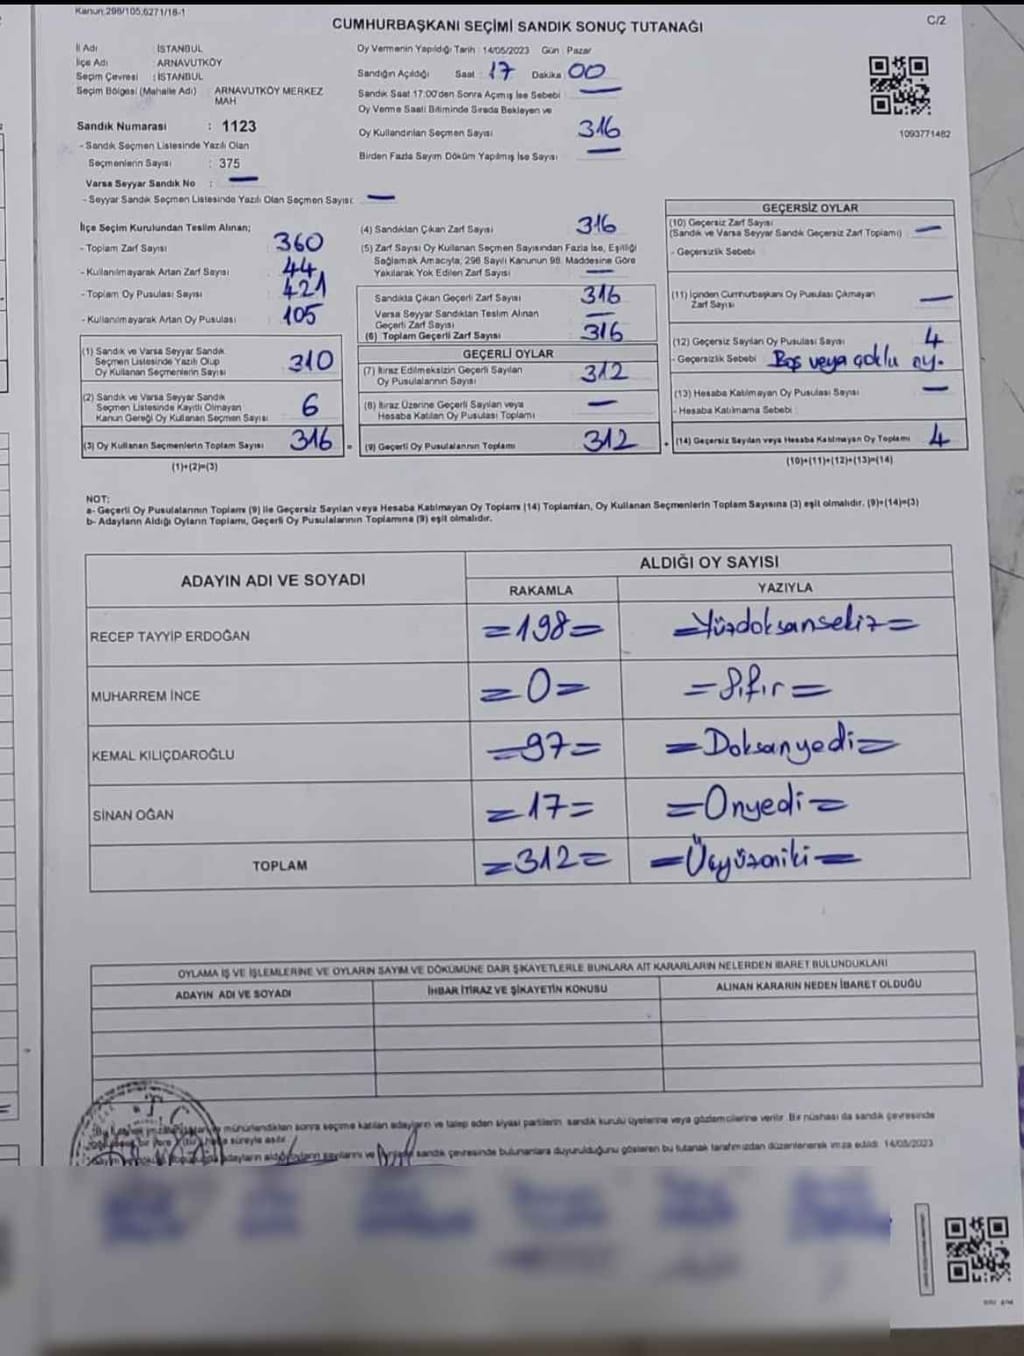 Kanun,298/105,6271/16-1
C/2
CUMHURBAŞKANI SEÇİMİ SANDIK SONUÇ TUTANAĞI
İl Adı : İSTANBUL
İlçe Adı : ARNAVUTKÖY
Seçim Çevresi : İSTANBUL
Seçim Bölgesi (Mahalle Adı) : ARNAVUTKÖY MERKEZ MAH
Sandık Numarası : 1123
- Sandık Seçmen Listesinde Yazılı Olan
Seçmenlerin Sayısı : 375
Varsa Seyyar Sandık No : —
- Seyyar Sandık Seçmen Listesinde Yazılı Olan Seçmen Sayısı: —
Oy Vermenin Yapıldığı Tarih : 14/05/2023 Gün : Pazar
Sandığın Açıldığı Saat : 17 Dakika : 00
Sandık Saat 17:00'den Sonra Açımış İse Sebebi : —
Oy Verme Saati Bitiminde Sırada Bekleyen ve
Oy Kullandırılan Seçmen Sayısı : 316
Birden Fazla Sayım Döküm Yapılmış İse Sayısı : —
1093771482
İlçe Seçim Kurulundan Teslim Alınan;
- Toplam Zarf Sayısı : 360
- Kullanılmayarak Artan Zarf Sayısı : 44
- Toplam Oy Pusulası Sayısı : 421
- Kullanılmayarak Artan Oy Pusulası : 105
(1) Sandık ve Varsa Seyyar Sandık
Seçmen Listesinde Yazılı Olup
Oy Kullanan Seçmenlerin Sayısı : 310
(2) Sandık ve Varsa Seyyar Sandık
Seçmen Listesinde Kayıtlı Olmayan
Kanun Gereği Oy Kullanan Seçmen Sayısı : 6
(3) Oy Kullanan Seçmenlerin Toplam Sayısı : 316 =
(1)+(2)=(3)
(4) Sandıktan Çıkan Zarf Sayısı : 316
(5) Zarf Sayısı Oy Kullanan Seçmen Sayısından Fazla İse, Eşitliği
Sağlamak Amacıyla, 298 Sayılı Kanunun 98. Maddesine Göre
Yakılarak Yok Edilen Zarf Sayısı : —
Sandıkta Çıkan Geçerli Zarf Sayısı : 316
Varsa Seyyar Sandıktan Teslim Alınan
Geçerli Zarf Sayısı : —
(6) Toplam Geçerli Zarf Sayısı : 316
GEÇERLİ OYLAR
(7) İtiraz Edilmeksizin Geçerli Sayılan
Oy Pusulalarının Sayısı : 312
(8) İtiraz Üzerine Geçerli Sayılan veya
Hesaba Katılan Oy Pusulası Toplamı : —
(9) Geçerli Oy Pusulalarının Toplamı : 312 +
GEÇERSİZ OYLAR
(10) Geçersiz Zarf Sayısı
(Sandık ve Varsa Seyyar Sandık Geçersiz Zarf Toplamı) : —
- Geçersizlik Sebebi :
(11) İçinden Cumhurbaşkanı Oy Pusulası Çıkmayan
Zarf Sayısı : —
(12) Geçersiz Sayılan Oy Pusulası Sayısı : 4
- Geçersizlik Sebebi : Boş veya çoklu oy.
(13) Hesaba Katılmayan Oy Pusulası Sayısı : —
- Hesaba Katılmama Sebebi :
(14) Geçersiz Sayılan veya Hesaba Katılmayan Oy Toplamı : 4
(10)+(11)+(12)+(13)=(14)
NOT:
a- Geçerli Oy Pusulalarının Toplamı (9) ile Geçersiz Sayılan veya Hesaba Katılmayan Oy Toplamı (14) Toplamları, Oy Kullanan Seçmenlerin Toplam Sayısına (3) eşit olmalıdır. (9)+(14)=(3)
b- Adayların Aldığı Oyların Toplamı, Geçerli Oy Pusulalarının Toplamına (9) eşit olmalıdır.
ADAYIN ADI VE SOYADI
ALDIĞI OY SAYISI
RAKAMLA YAZIYLA
RECEP TAYYİP ERDOĞAN =198= =Yüzdoksansekiz=
MUHARREM İNCE =0= =Sıfır=
KEMAL KILIÇDAROĞLU =97= =Doksanyedi=
SİNAN OĞAN =17= =Onyedi=
TOPLAM =312= =Üçyüzoniki=
OYLAMA İŞ VE İŞLEMLERİNE VE OYLARIN SAYIM VE DÖKÜMÜNE DAİR ŞİKAYETLERLE BUNLARA AİT KARARLARIN NELERDEN İBARET BULUNDUKLARI
ADAYIN ADI VE SOYADI İHBAR İTİRAZ VE ŞİKAYETİN KONUSU ALINAN KARARIN NEDEN İBARET OLDUĞU
T.C.
mühürlendikten sonra seçime katılan adayların ve talep eden siyasi partilerin sandık kurulu üyelerine veya gözlemcilerine verilir. Bir nüshası da sandık çevresinde
süreyle asılır.
adayların aldığı sandık çevresinde bulunanlara duyurulduğunu gösteren bu tutanak tarafımızdan düzenlenerek imza edildi. 14/05/2023